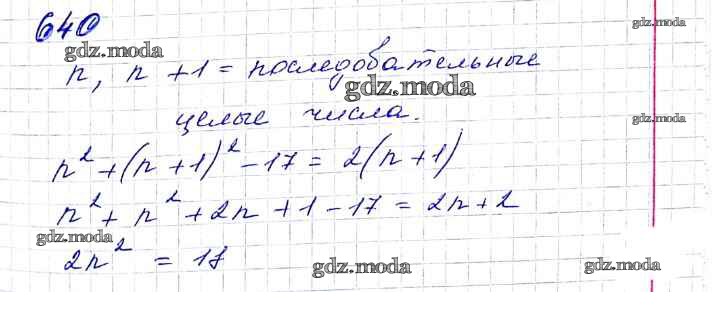 640
gdz.moda
gdz.moda
n, n + 1 = последовательные
gdz.moda
целые числа.
gdz.moda
n² + (n + 1)² - 17 = 2(n + 1)
n² + n² + 2n + 1 - 17 = 2n + 2
gdz.moda
2n² = 18
gdz.moda
gdz.moda